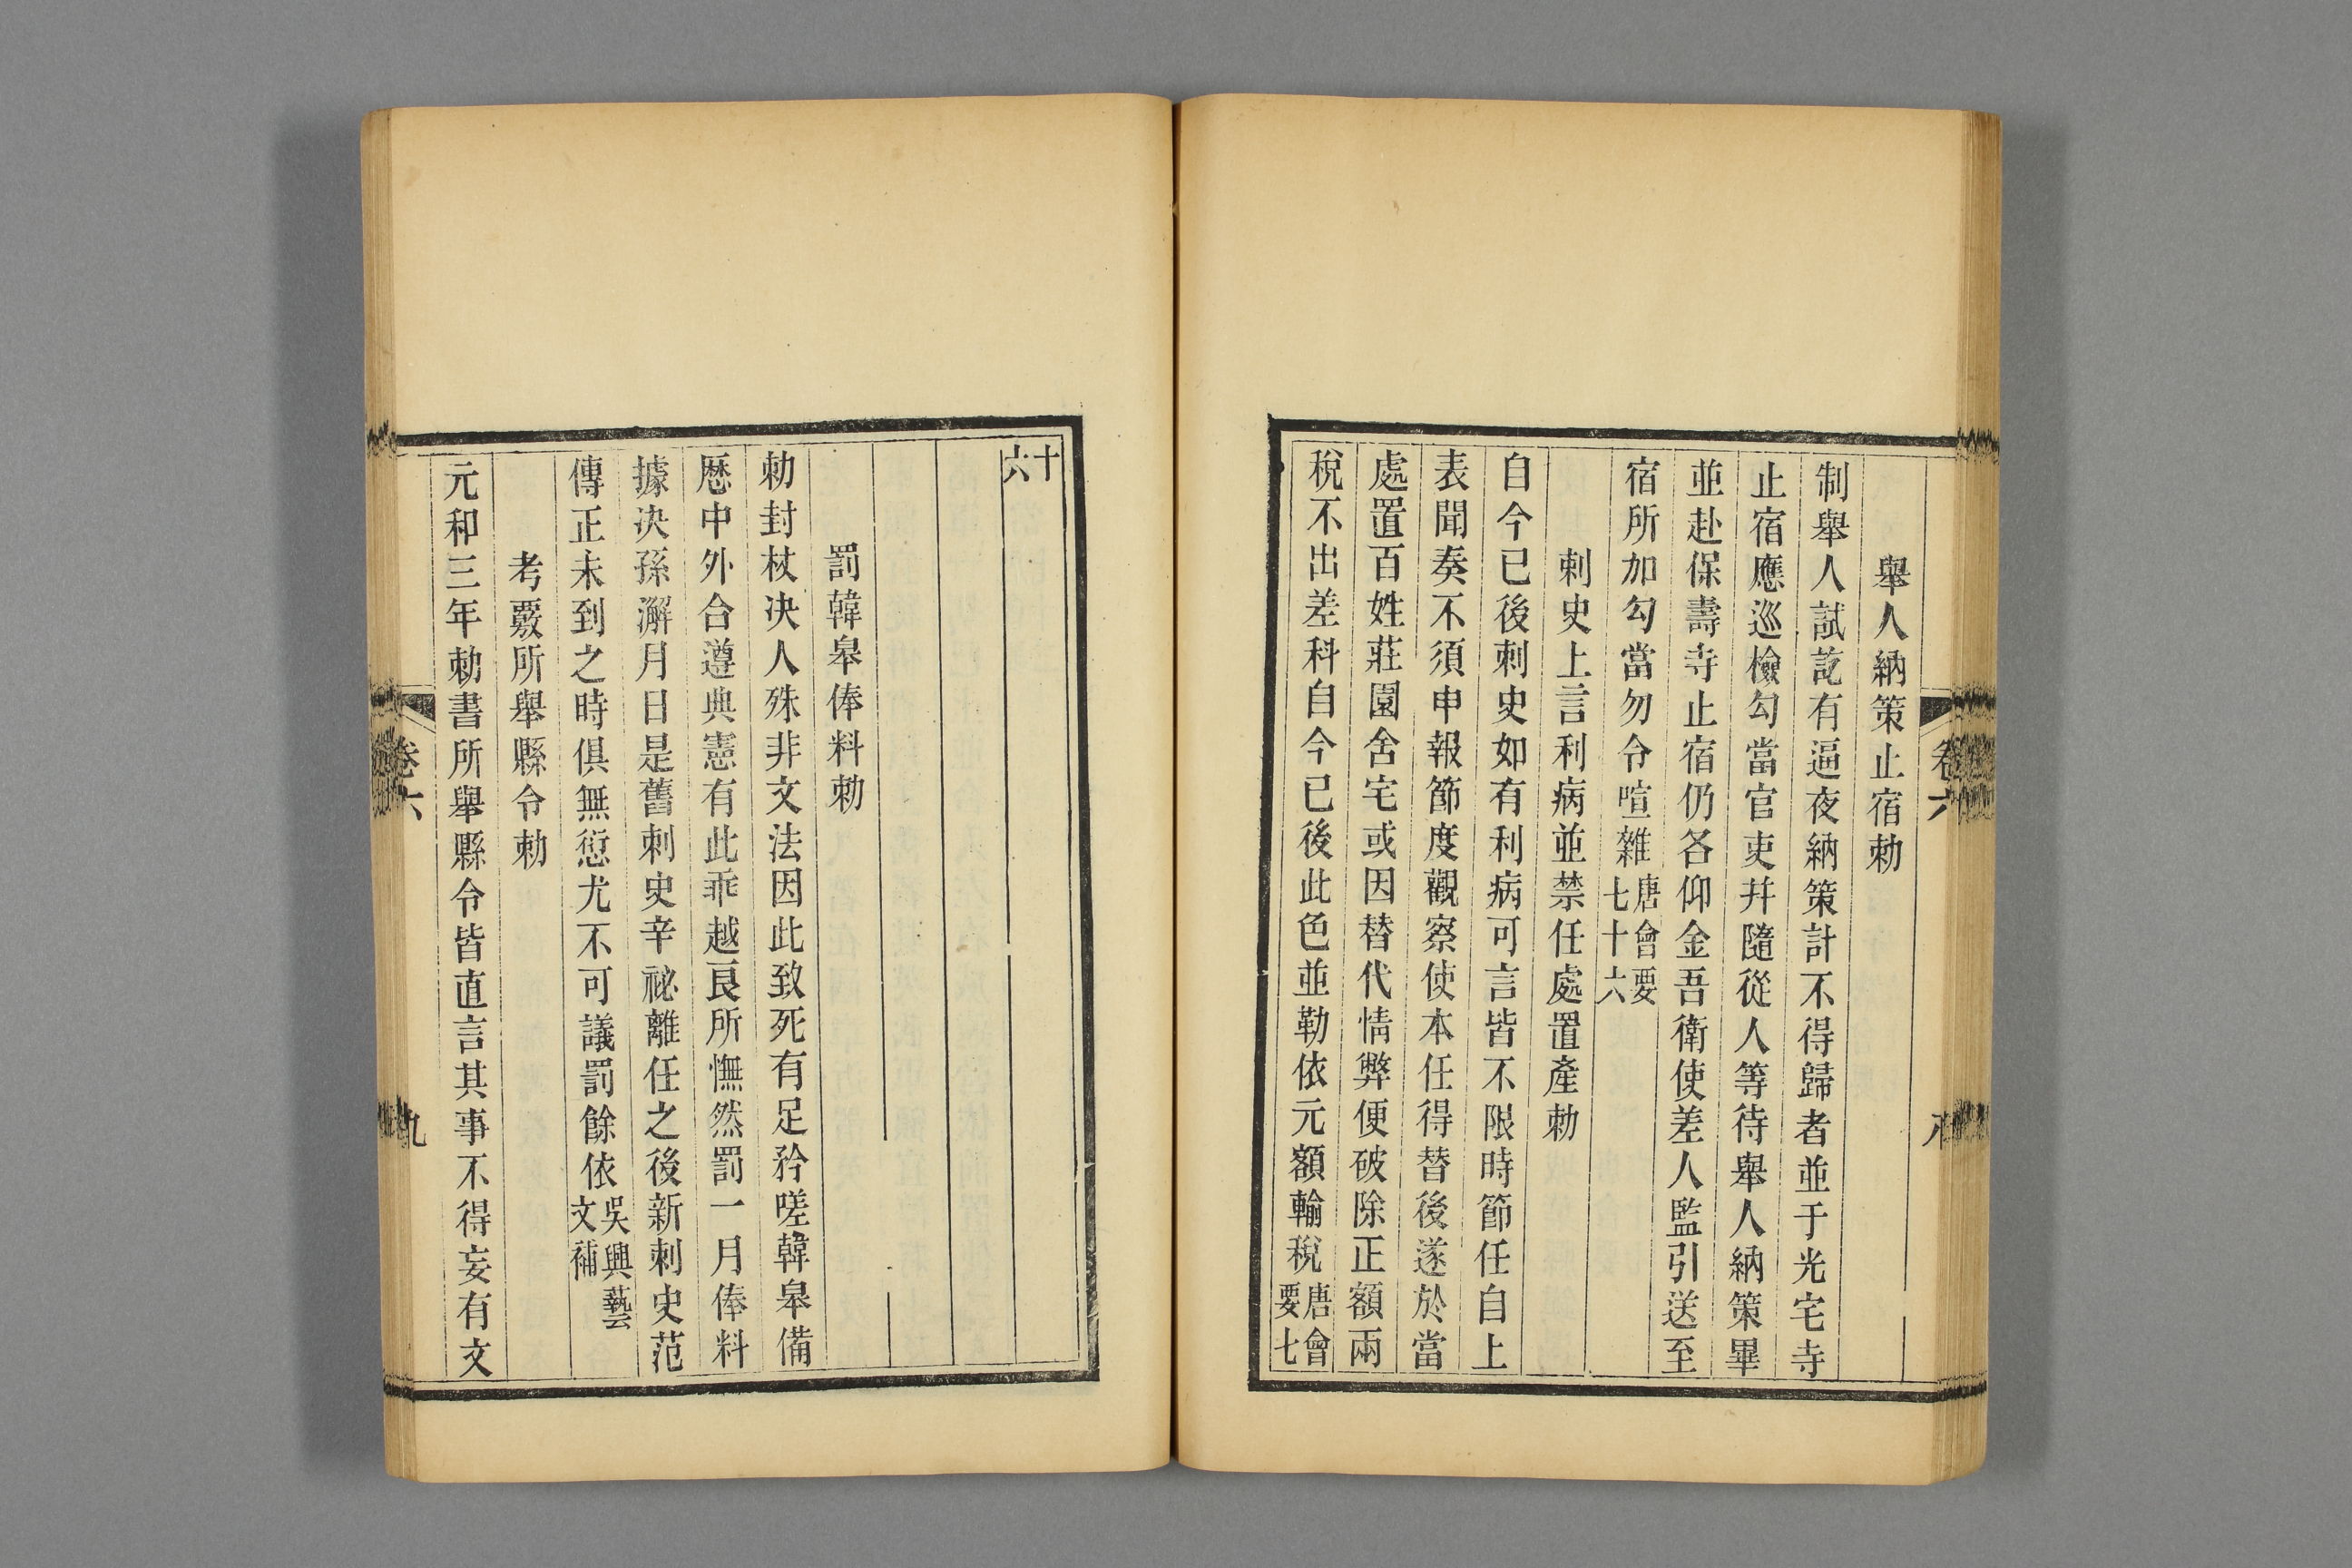 舉人納策止宿勅
制舉人試訖有逼夜納策計不得歸者並于光宅寺
止宿應巡檢勾當官吏并隨從人等待舉人納策畢
並赴保壽寺止宿仍各仰金吾衛使差人監引送至
宿所加勾當勿令喧雜唐會要七十六
刺史上言利病並禁任處置產勅
自今已後刺史如有利病可言皆不限時節任自上
表聞奏不須申報節度觀察使本任得替後遂於當
處置百姓莊園舍宅或因替代情弊便破除正額兩
稅不出差科自今已後此色並勒依元額輸稅唐會要七
卷六
八
十六
罰韓皋俸料勅
勅封杖决人殊非文法因此致死有足矜嗟韓皋備
歷中外合遵典憲有此乖越良所憮然罰一月俸料
據决孫澥月日是舊刺史辛祕離任之後新刺史范
傳正未到之時俱無愆尤不可議罰餘依吳興藝文補
考覈所舉縣令勅
元和三年勅書所舉縣令皆直言其事不得妄有文
卷六
九